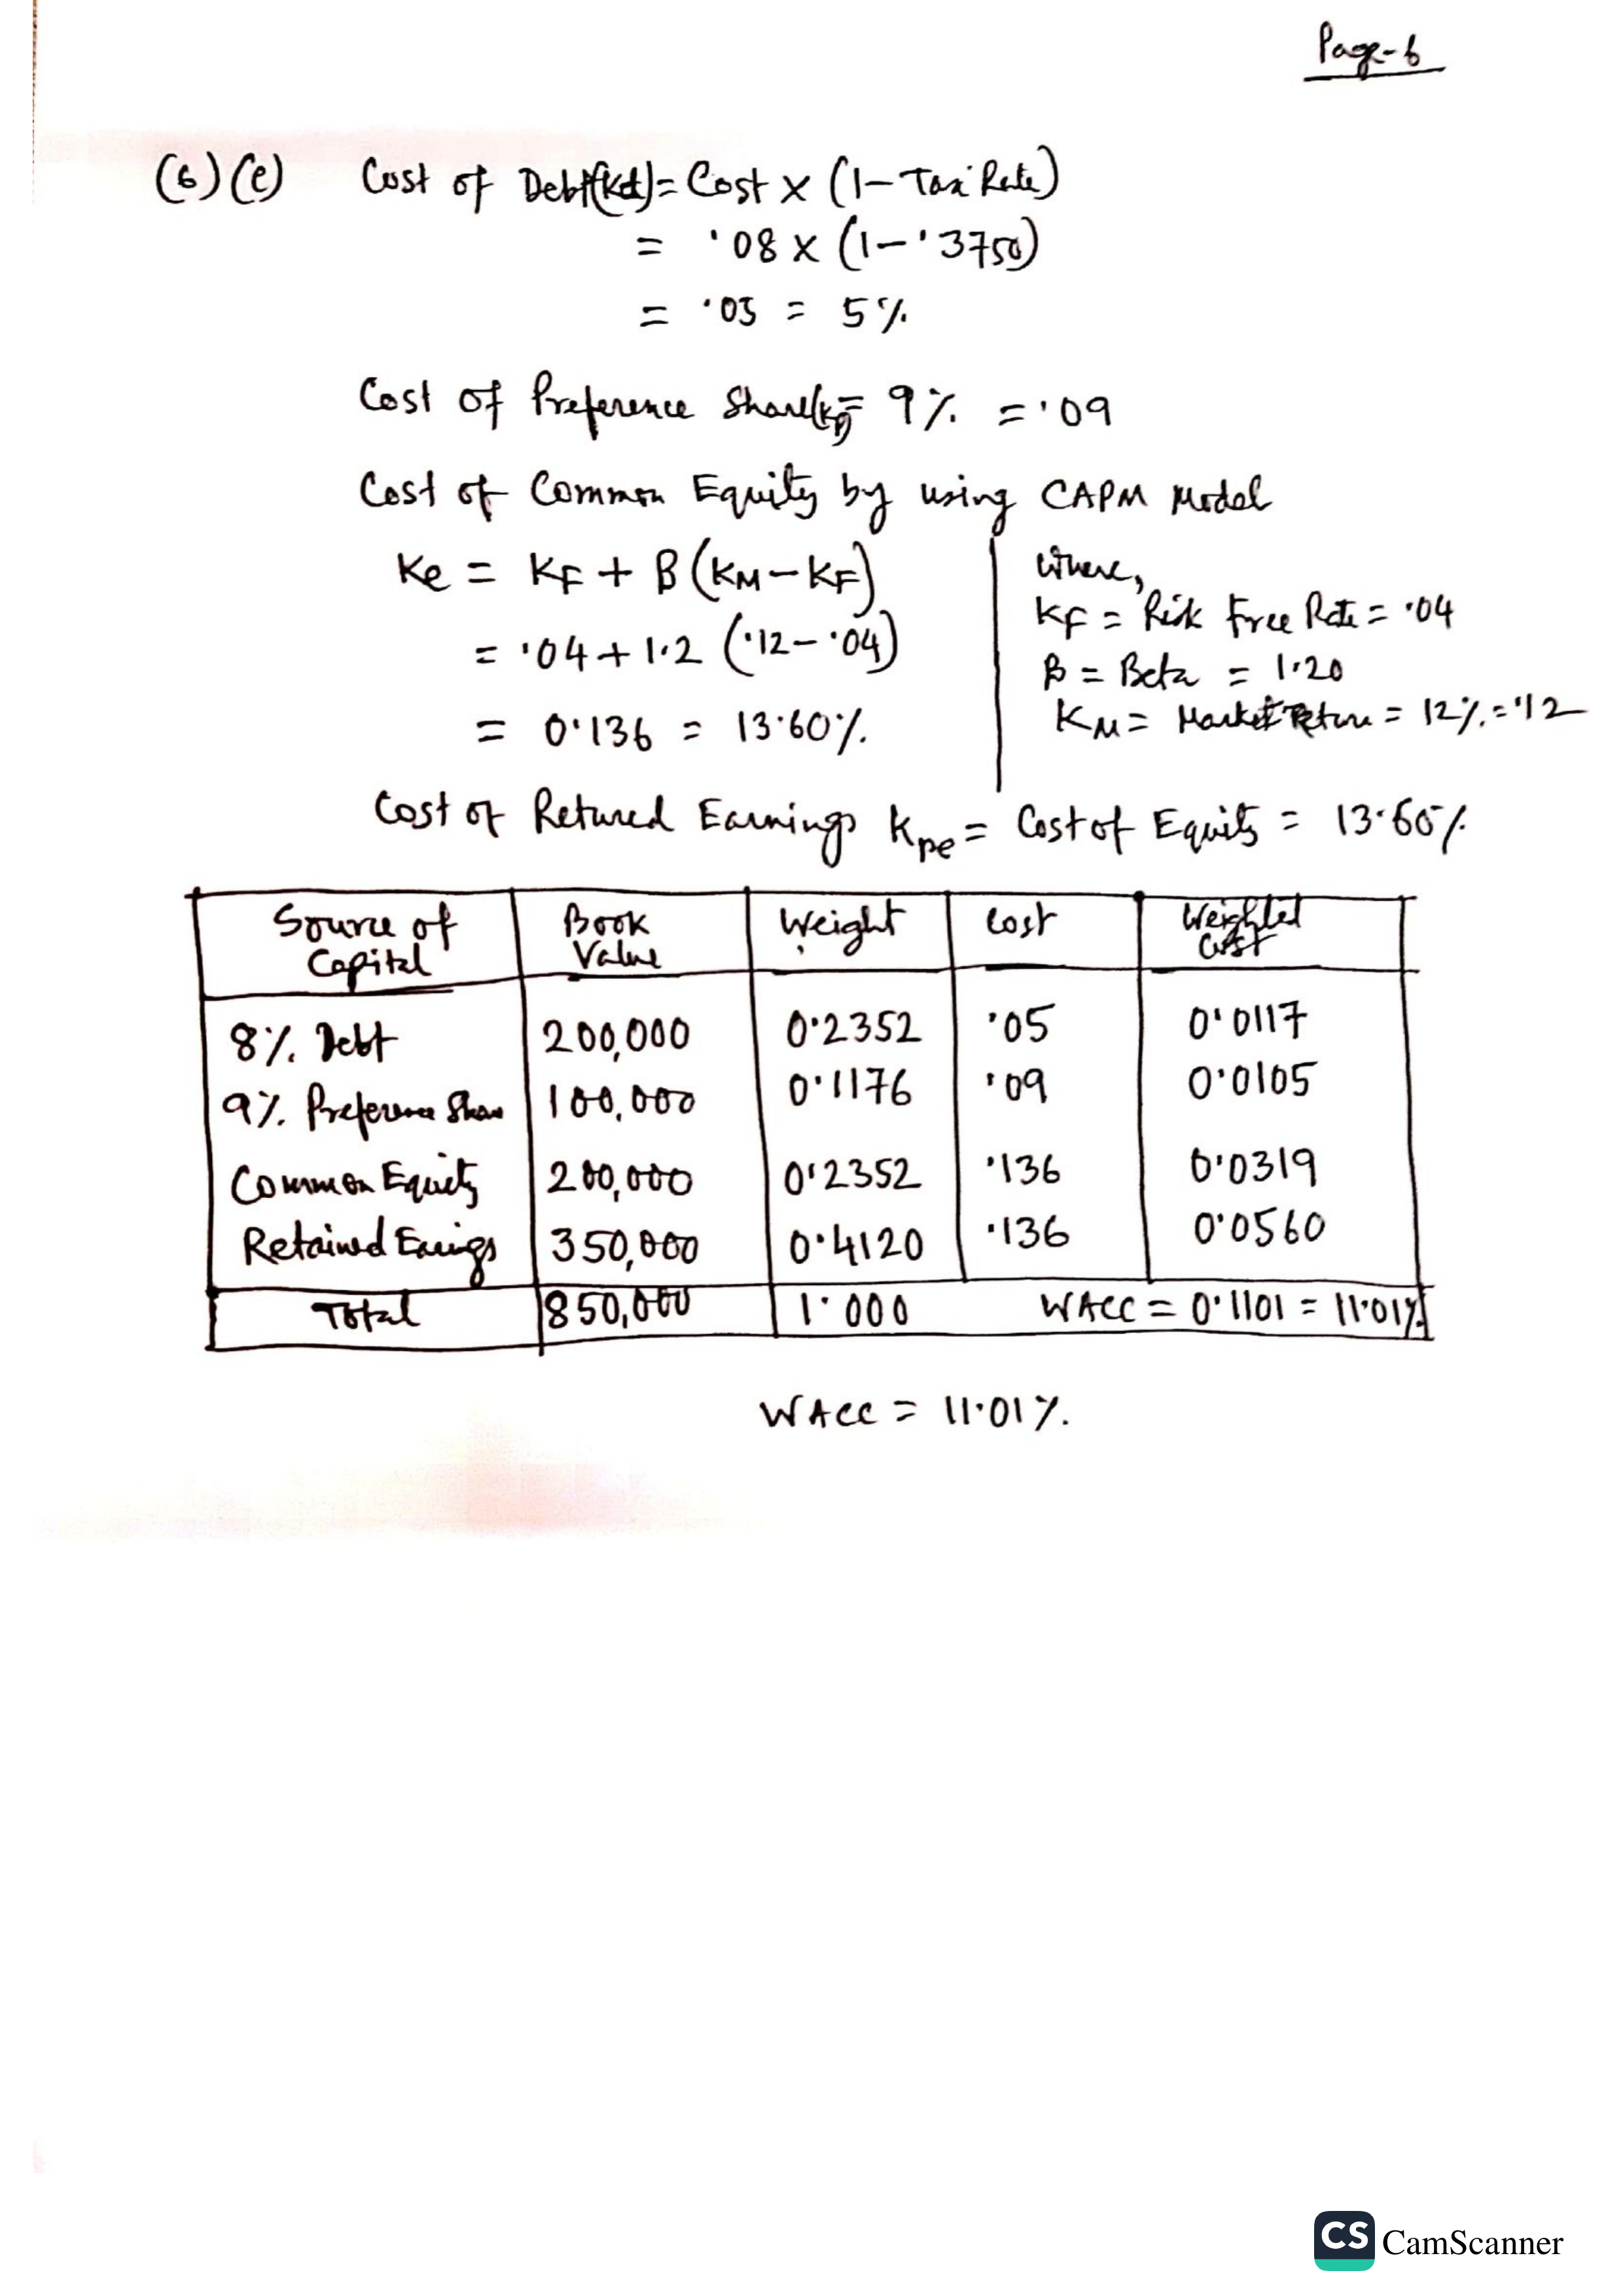 Page-6
(6)(e) Cost of Debt(Kd) = Cost × (1-Tax Rate)
= .08 × (1-.3750)
= .05 = 5%
Cost of Preference Share(Kp) = 9% = .09
Cost of Common Equity by using CAPM Model
Ke = KF + B(KM-KF)
= .04 + 1.2 (.12-.04)
= 0.136 = 13.60%
Where,
KF = Risk Free Rate = .04
B = Beta = 1.20
KM = Market Return = 12% = .12
Cost of Retured Earnings Kre = Cost of Equity = 13.60%
Source of Capital Book Value Weight Cost Weighted Cost
8% Debt 200,000 0.2352 .05 0.0117
9% Preference Share 100,000 0.1176 .09 0.0105
Common Equity 200,000 0.2352 .136 0.0319
Retained Earings 350,000 0.4120 .136 0.0560
Total 850,000 1.000 WACC = 0.1101 = 11.01%
WACC = 11.01%.
CS CamScanner